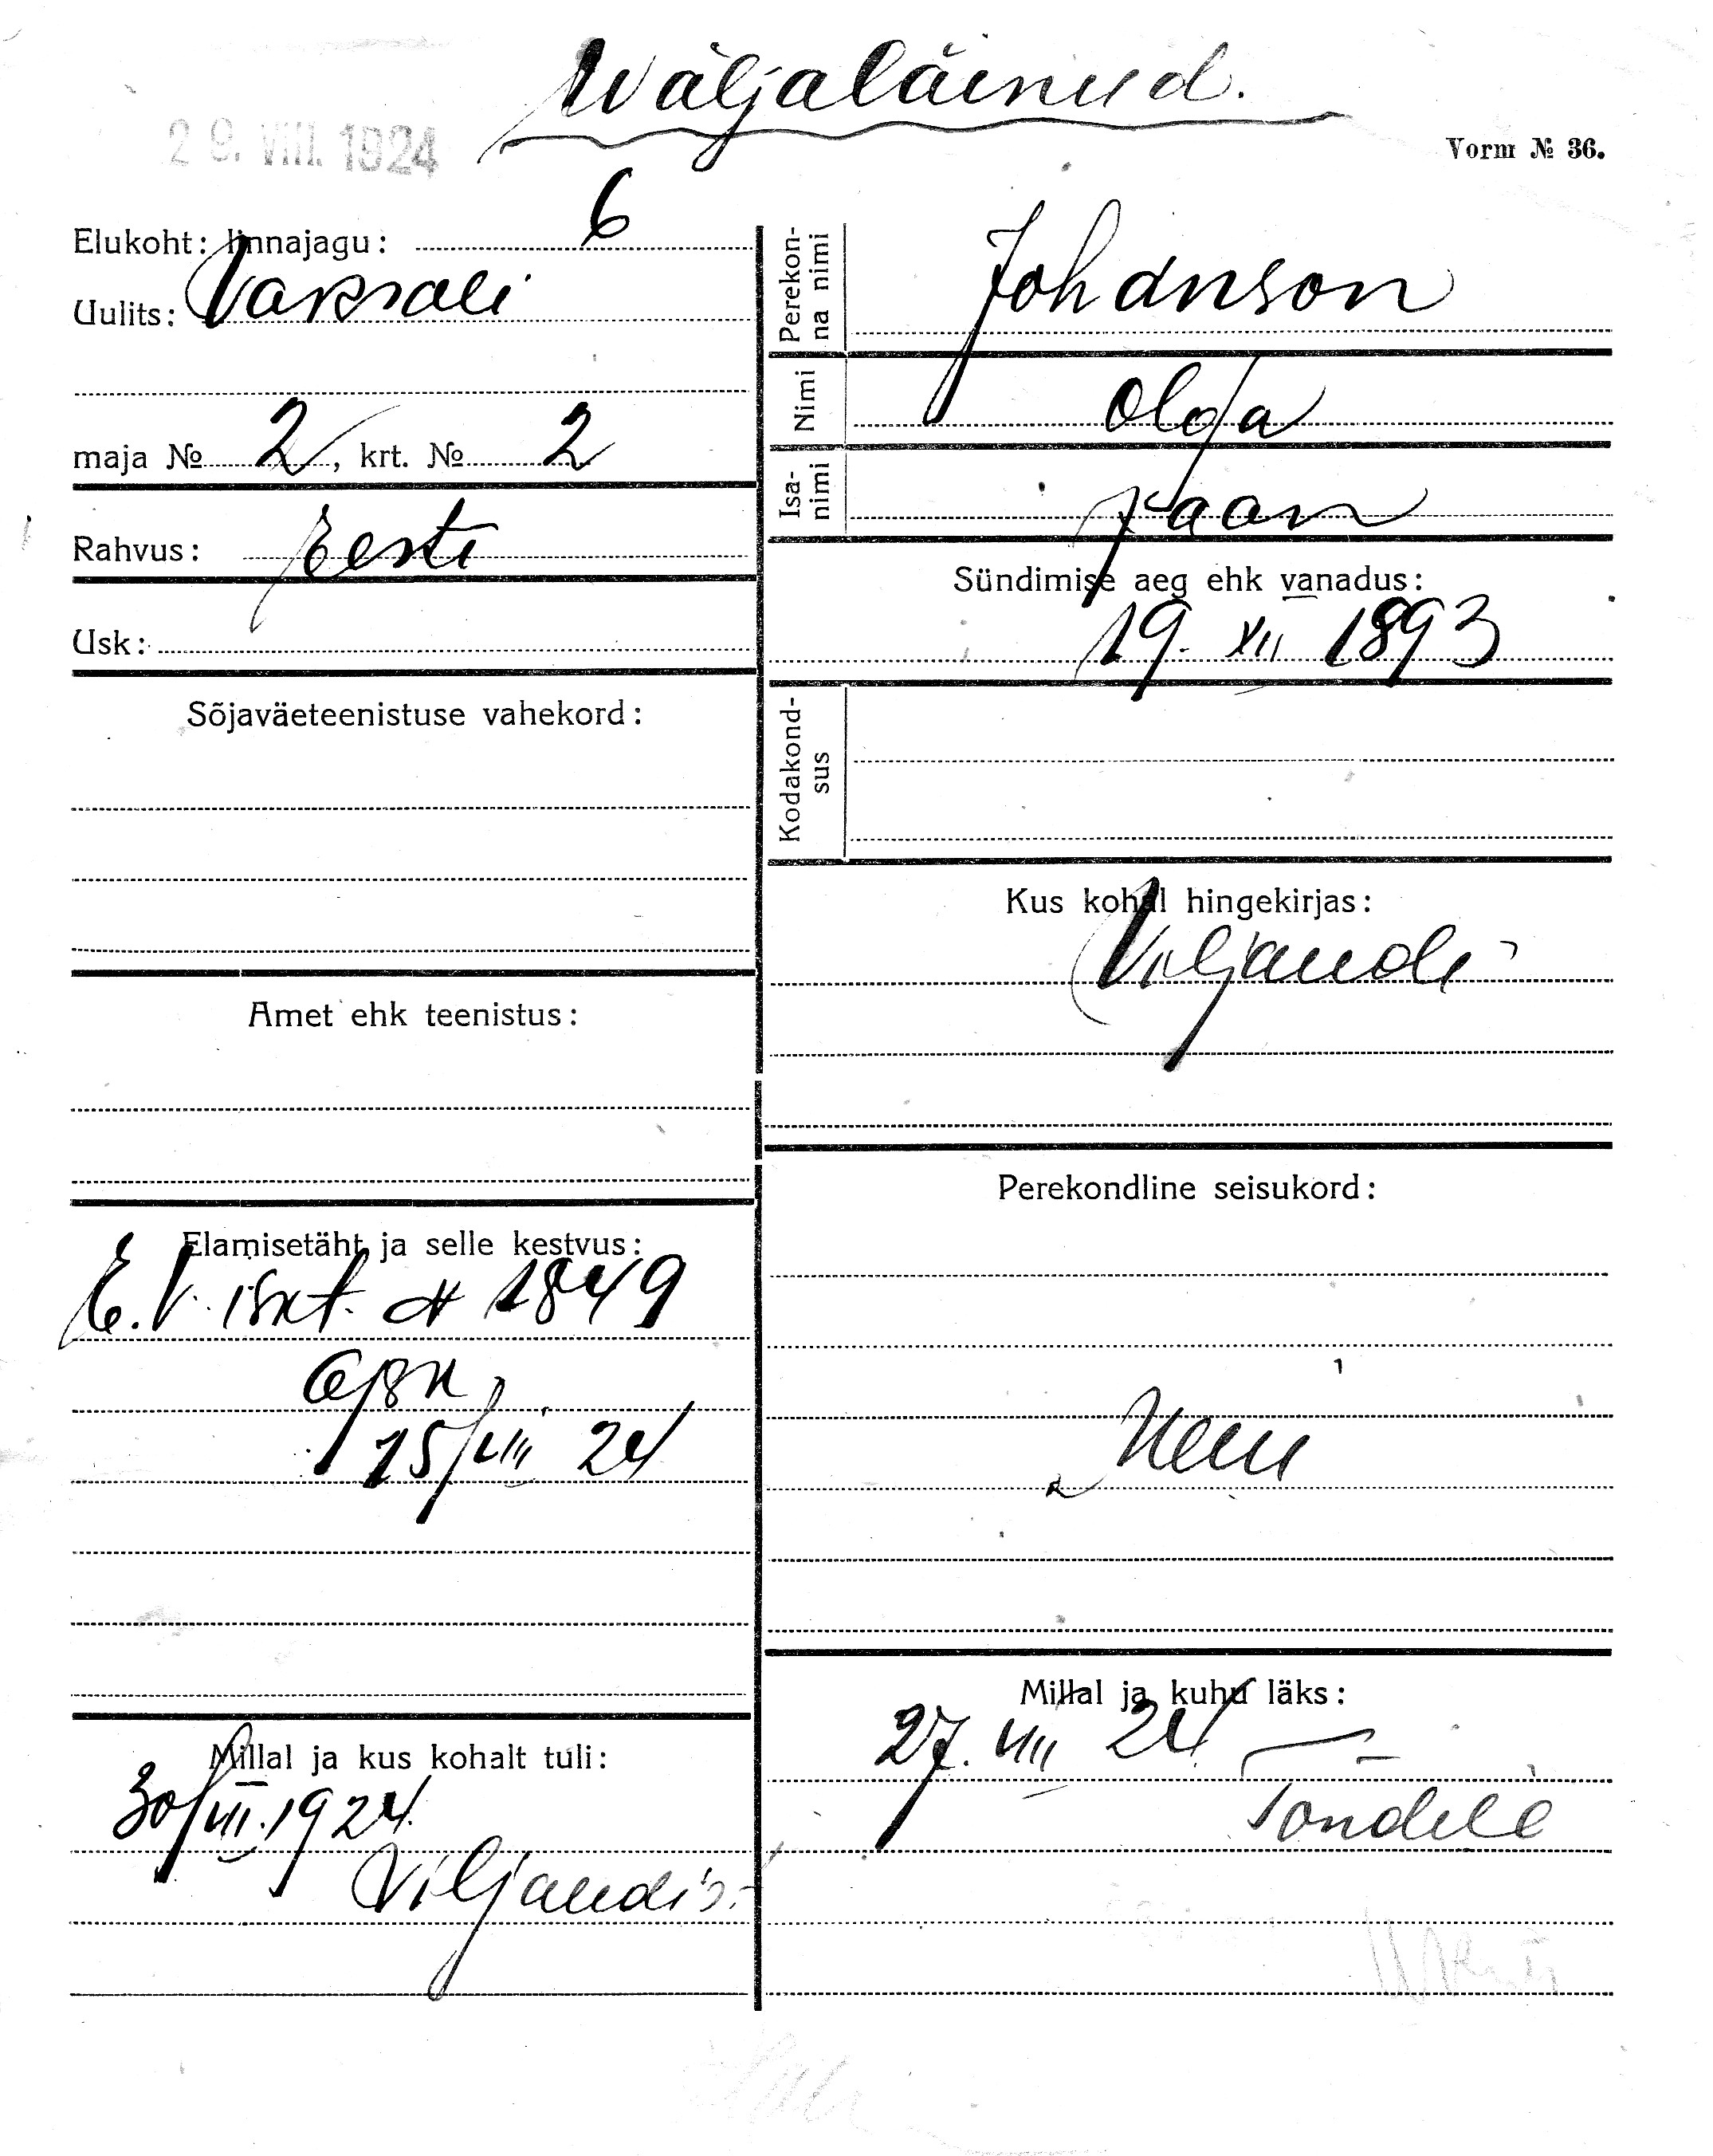 Wäljaläinud.
29. VIII. 1924
Vorm № 36.
Elukoht: linnajagu: 6
Uulits: Vaksali
maja № 2, krt. № 2
Rahvus: Eesti
Usk:
Sõjaväeteenistuse vahekord:
Amet ehk teenistus:
Elamisetäht ja selle kestvus:
E. V. isat. № 1849
15/VIII 24
Millal ja kus kohalt tuli:
30/VII. 1924.
Viljandis.
Perekon-
na nimi
Johanson
Nimi
Olga
Isa-
nimi
Jaan
Sündimise aeg ehk vanadus:
19. XII 1893
Kodakond-
sus
Kus kohal hingekirjas:
Viljandi
Perekondline seisukord:
Millal ja kuhu läks:
27. VIII 24